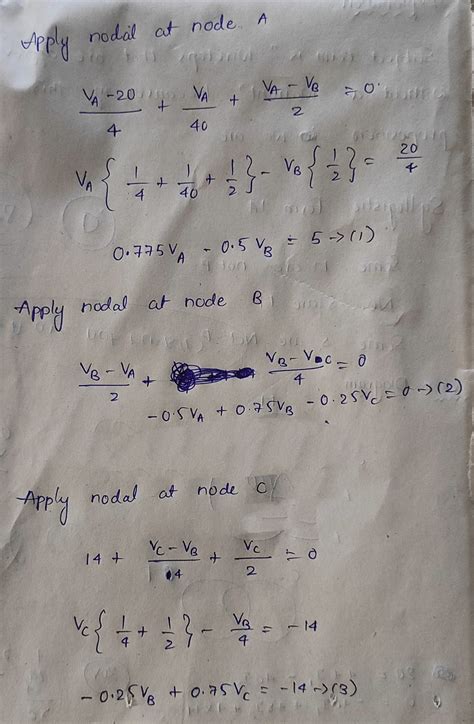 Apply nodal at node A
(V_A - 20)/4 + V_A/40 + (V_A - V_B)/2 = 0
V_A { 1/4 + 1/40 + 1/2 } - V_B { 1/2 } = 20/4
0.775 V_A - 0.5 V_B = 5 → (1)
Apply nodal at node B
(V_B - V_A)/2 + (V_B - V_C)/4 = 0
-0.5V_A + 0.75V_B - 0.25V_C = 0 → (2)
Apply nodal at node C
14 + (V_C - V_B)/4 + V_C/2 = 0
V_C { 1/4 + 1/2 } - V_B/4 = -14
-0.25V_B + 0.75V_C = -14 → (3)